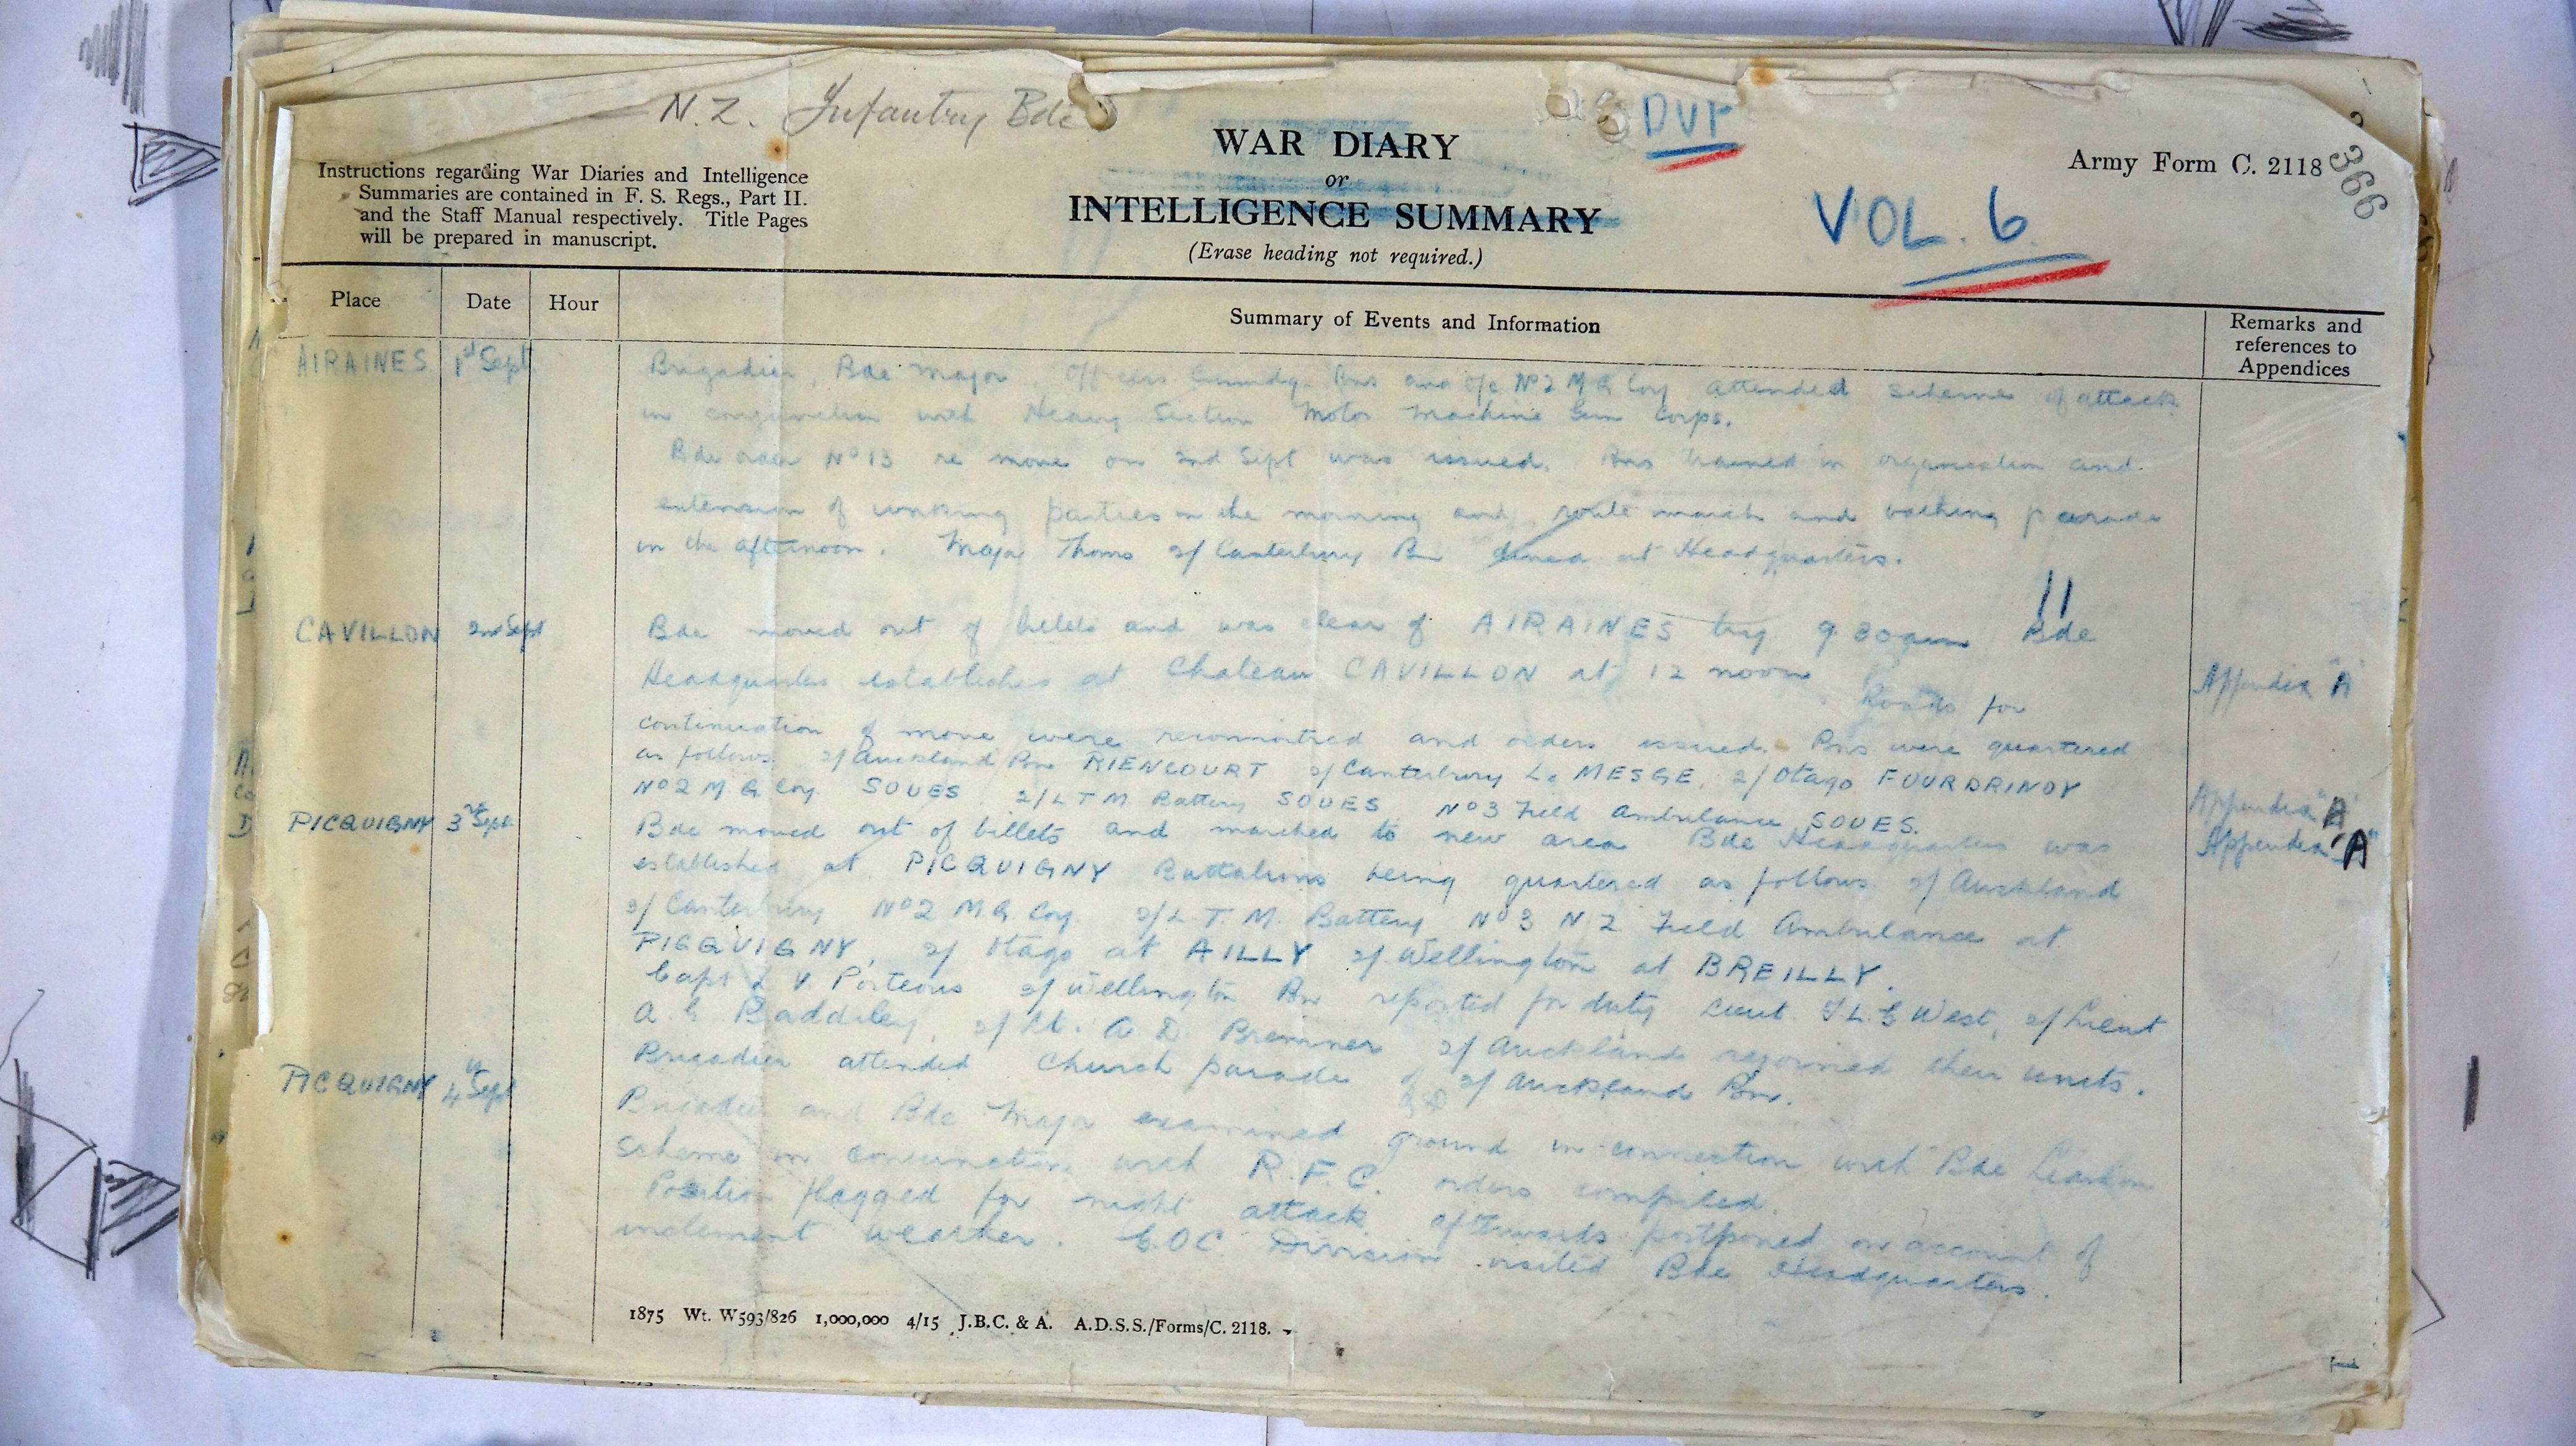 N.Z. Infantry Bde
DUP
WAR DIARY
or
INTELLIGENCE SUMMARY
(Erase heading not required.)
Instructions regarding War Diaries and Intelligence
Summaries are contained in F. S. Regs., Part II.
and the Staff Manual respectively. Title Pages
will be prepared in manuscript.
Army Form C. 2118
366
VOL. 6
Place Date Hour Summary of Events and Information Remarks and
references to
Appendices
AIRAINES 1st Sept Brigadier, Bde Major, Officers Commdg. Bns and O/c No 2 M G Coy attended scheme of attack
in conjunction with Heavy Section Motor Machine Gun Corps.
Bde order No 13 re move on 2nd Sept was issued. Bns trained in organisation and
extension of working parties in the morning and route march and bathing parade
in the afternoon. Major Thoms 2/Canterbury Bn dined at Headquarters.
11
CAVILLON 2nd Sept Bde moved out of billets and was clear of AIRAINES by 9 30am Bde
Headquarters established at Chateau CAVILLON at 12 noon Appendix "A"
Roads for
continuation of move were reconnoitred and orders issued. Bns were quartered
as follows 2/Auckland Bn RIENCOURT 2/Canterbury Le MESGE, 2/Otago FOURDRINOY
No 2 M.G. Coy SOUES 2/L T M Battery SOUES No 3 Field Ambulance SOUES. Appendix "A"
PICQUIGNY 3rd Sept Bde moved out of billets and marched to new area Bde Headquarters was Appendix "A"
established at PICQUIGNY Battalions being quartered as follows 2/Auckland
2/Canterbury No 2 M.G. Coy. 2/L. T. M. Battery No 3 N Z Field Ambulance at
PICQUIGNY, 2/Otago at AILLY 2/Wellington at BREILLY.
Capt L V Porteous 2/Wellington Bn reported for duty Lieut. F L G West, 2/Lieut
A. G Baddiley, 2/Lt. A D. Bremner 2/Auckland rejoined their units.
PICQUIGNY 4th Sept Brigadier attended Church parade of 2/Auckland Bn.
Brigadier and Bde Major examined ground in connection with Bde Liaison
scheme in conjunction with R.F.C. orders compiled.
Position flagged for night attack afterwards postponed on account of
inclement weather. G.O.C. Division visited Bde Headquarters.
1875 Wt. W593/826 1,000,000 4/15 J.B.C. & A. A.D.S.S./Forms/C. 2118.